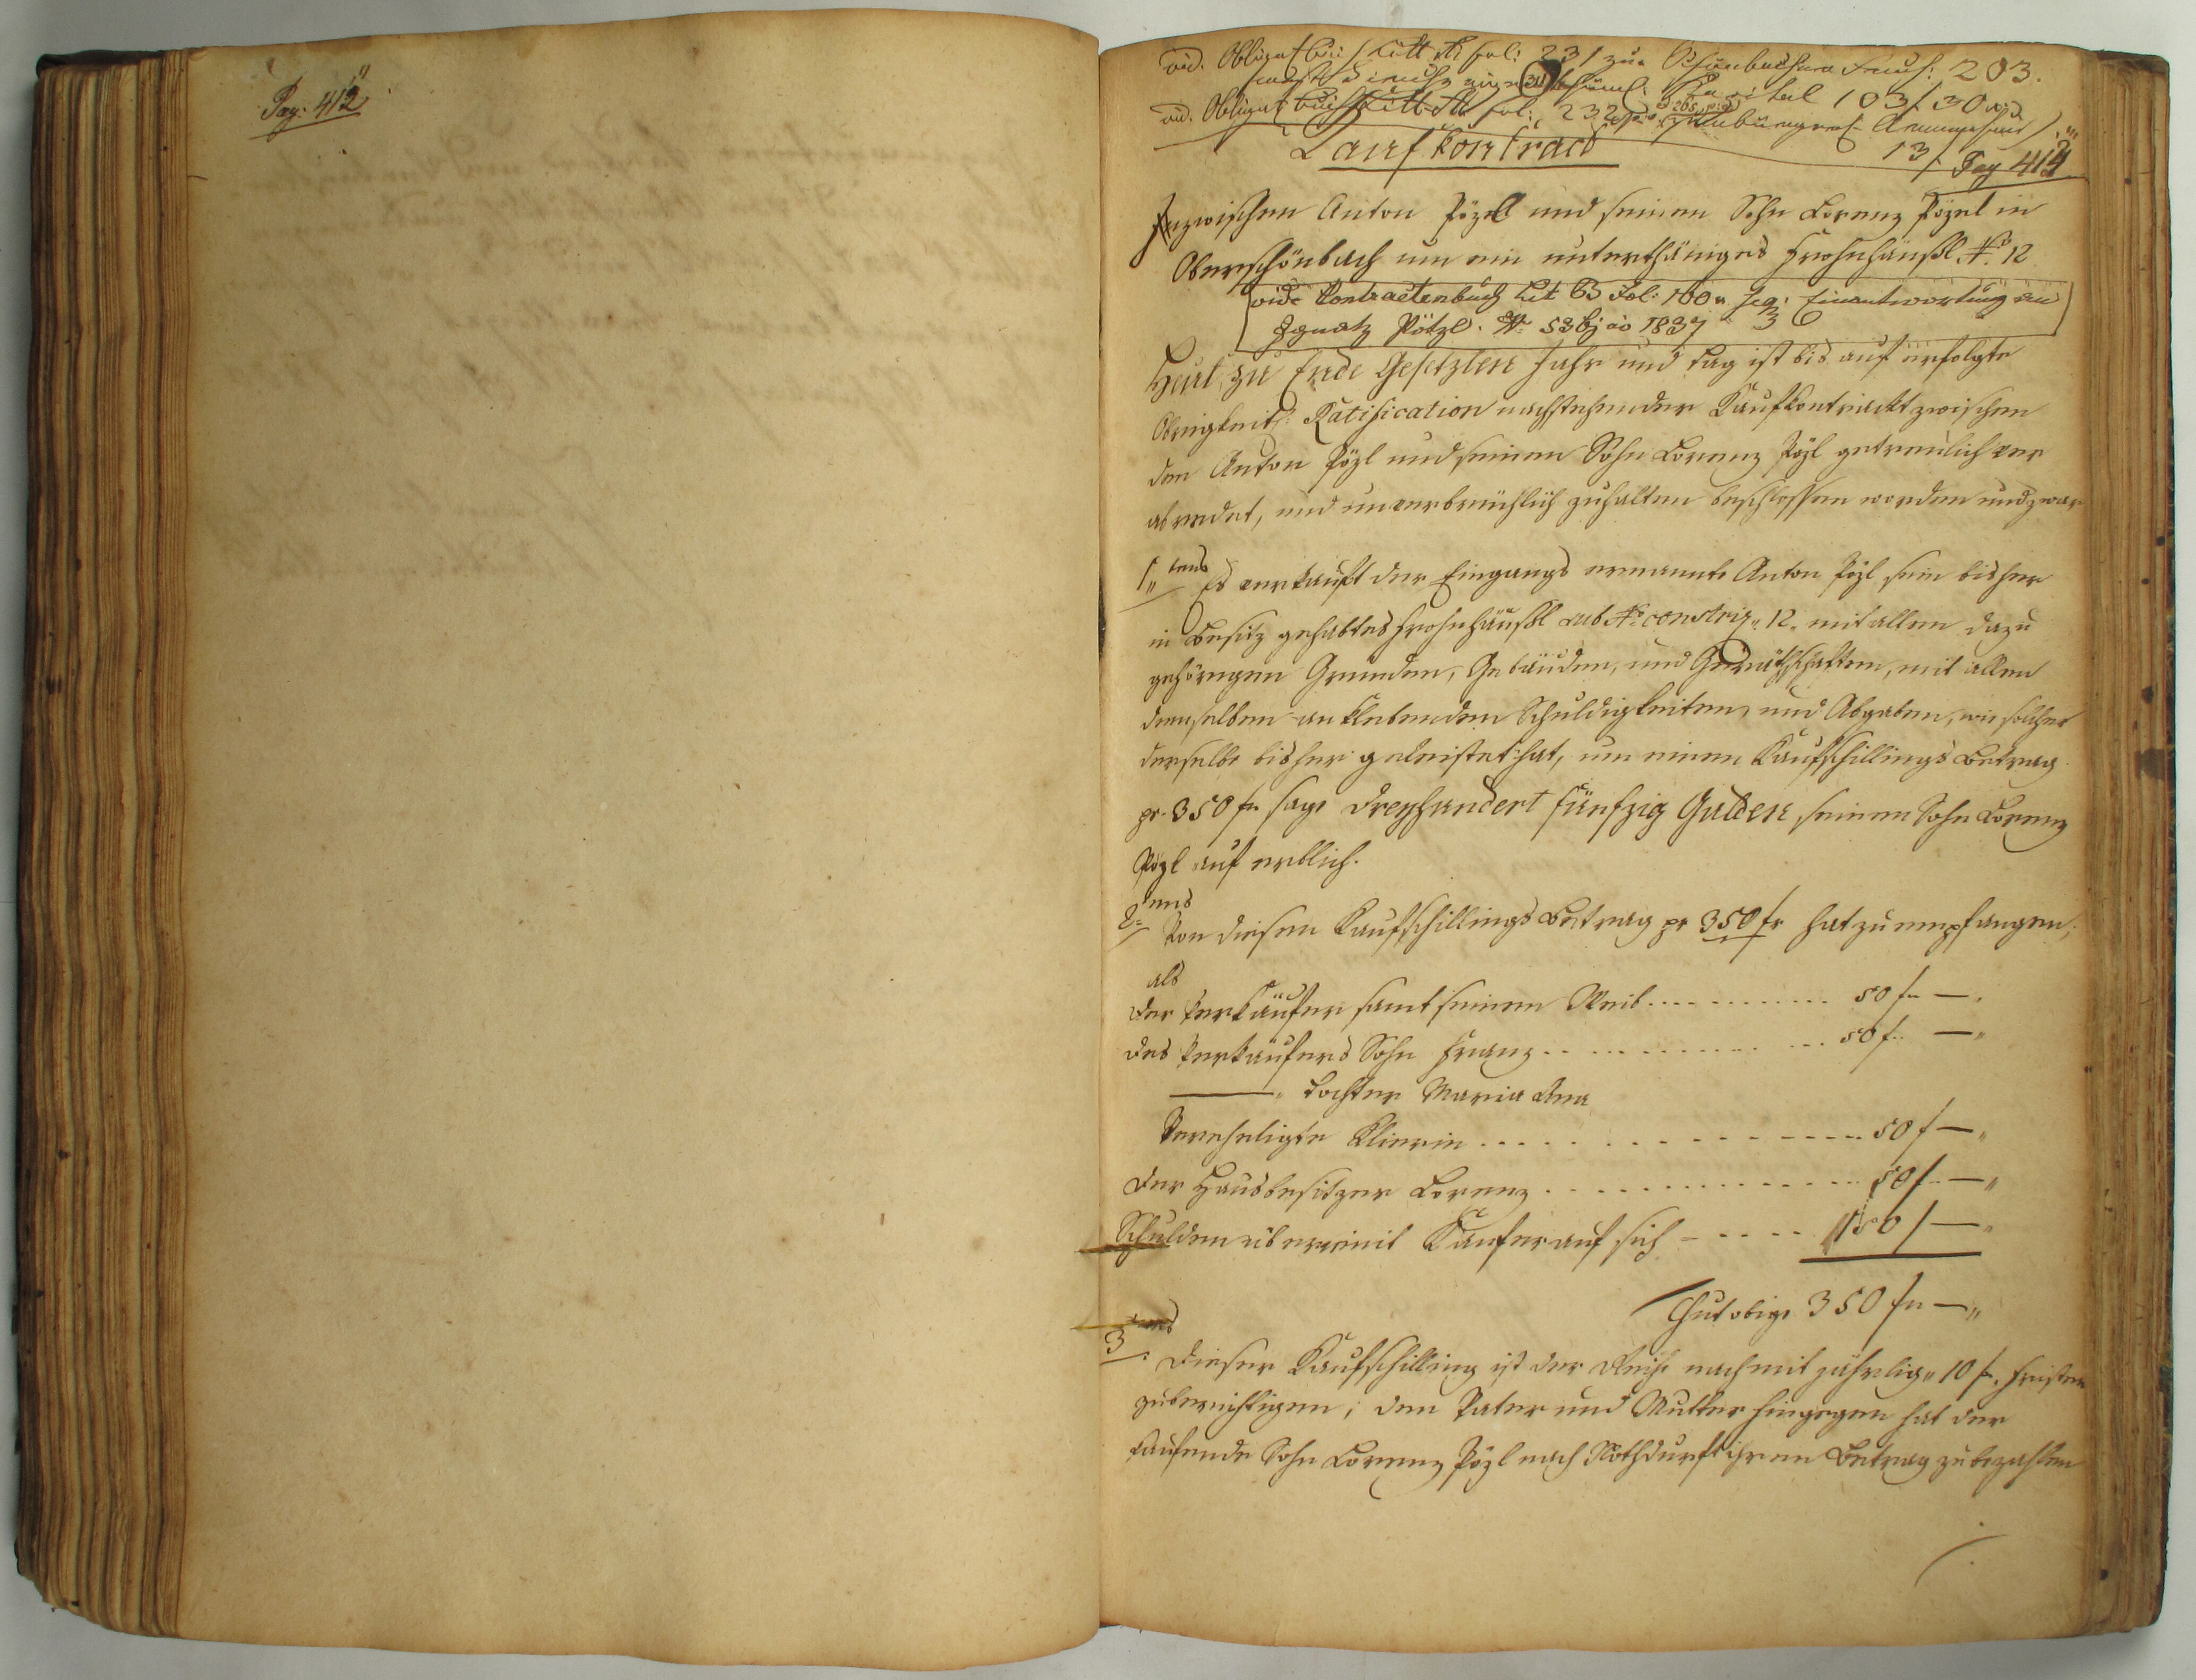 Pag. 412
vid. Obligat. buch Litt. fol: 231 zur Schönbacher 203.
Capital 103 f 30
vid. Obligat. buch Litt. fol: 232
13 f. Pag 413
Kauf Kontract
Inzwischen Anton Pözel und seinen Sohn Lorenz Pözel in
Oberschönbach um ein unterthäniges Frohnhäußl No. 12
vide Contractenbuch Lit B Fol: 100 Einantwortung an
Ignatz Pötzl. No 53 1837
Heut zu Ende Gesetzten Jahr und Tag ist bis auf erfolgte
Obrigkeitl: Ratification nachstehender Kaufkontrackt zwischen
den Anton Pözl und seinen Sohn Lorenz Pözl getreulich ver
abredet, und unverbrüchlich zuhalten beschlossen worden und zwar
1tens Es verkauft der Eingangs ernannte Anton Pözl sein bisher
in Besitz gehabtes Frohnhäußl sub No. conscrip. 12. mit allen dazu
gehörigen Gründen, Gebäuden, und Geräthschaften, mit allen
denselben anklebenden Schuldigkeiten, und Abgaben, wie solche
derselbe bisher geleistet hat, um einen Kaufschillings Betrag
pr. 350 fr sage Dreyhundert fünfzig Gulden seinen Sohn Lorenz
Pözl auf erblich.
2tens Von diesen Kaufschillings Betrag pr 350 fr hat zu empfangen,
als
der Verkäufer samt seinem Weib ............ 50 fr —.
des Verkäufers Sohn Franz ............ 50 f. —
——— " Tochter Maria Ana
Verehligte Klierin ............ 50 f —
der Hausbesitzer Lorenz ............ 50 f. —"
Schulden übernimt Käufer auf sich - .... 150 f —
Thut obige 350 fr —"
3tens Dieser Kaufschilling ist der Reihe nach mit jährlig. 10 f. fristen
zuberichtigen; den Vater und Mutter hingegen hat der
kaufende Sohn Lorenz Pözl nach Nothdurft ihren Betrag zu bezahlen